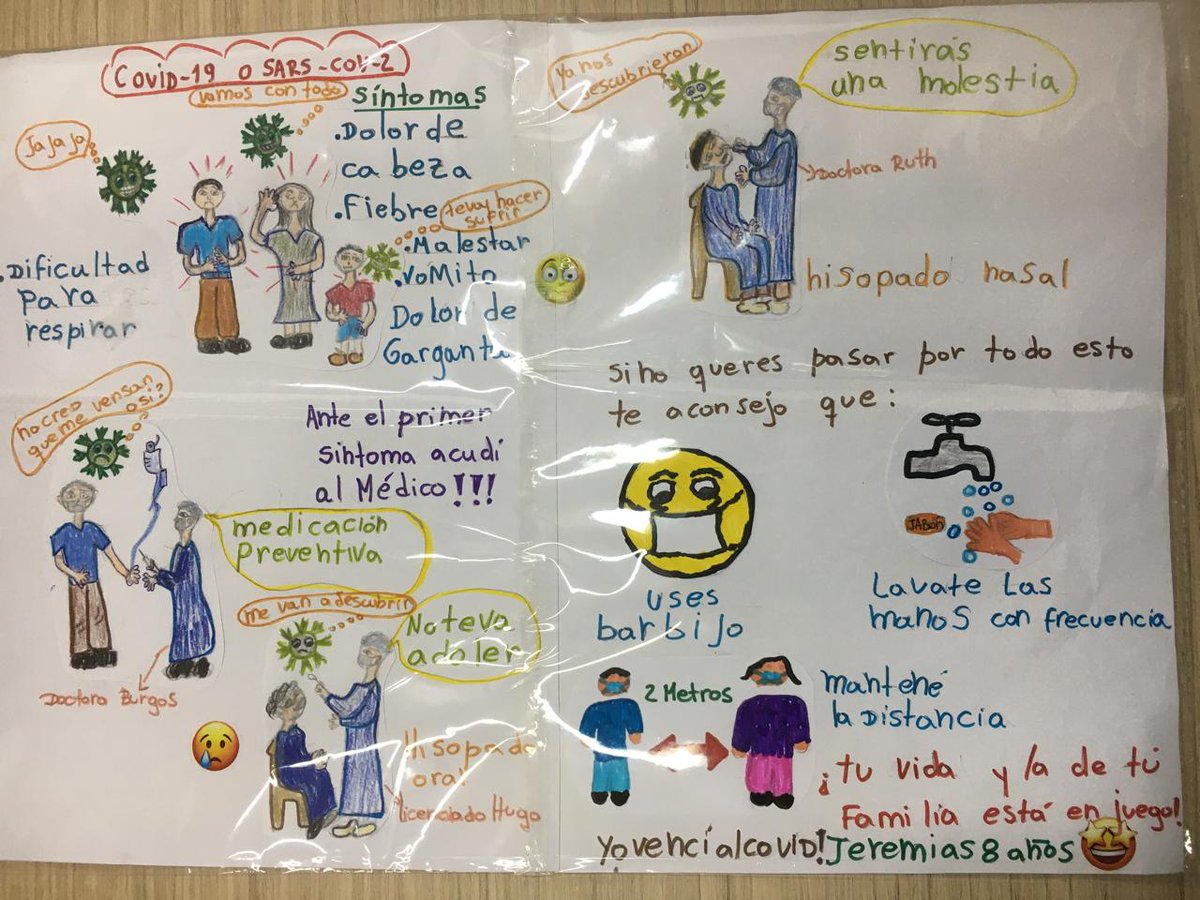 Covid-19 o SARS-COV-2
vamos con todo
Ja ja ja
síntomas
.Dolor de
cabeza
.Fiebre
te voy hacer
sufrir
.Malestar
.VoMito
Dolor de
Garganta
.Dificultad
para
respirar
no creo
que me vensan
asi?
Ante el primer
sintoma acudí
al Médico!!!
medicación
preventiva
Doctora Burgos
me van a descubrir
No te va
a doler
Hisopado
oral
licenciado Hugo
Ya nos
descubrieran
sentirás
una molestia
Doctora Ruth
hisopado nasal
si no queres pasar por todo esto
te aconsejo que:
uses
barbijo
JABON
Lavate Las
manos con frecuencia
2 Metros
mantené
la Distancia
¡tu vida y la de tú
Familia está en juego!
Yo vencí al covid! Jeremias 8 años